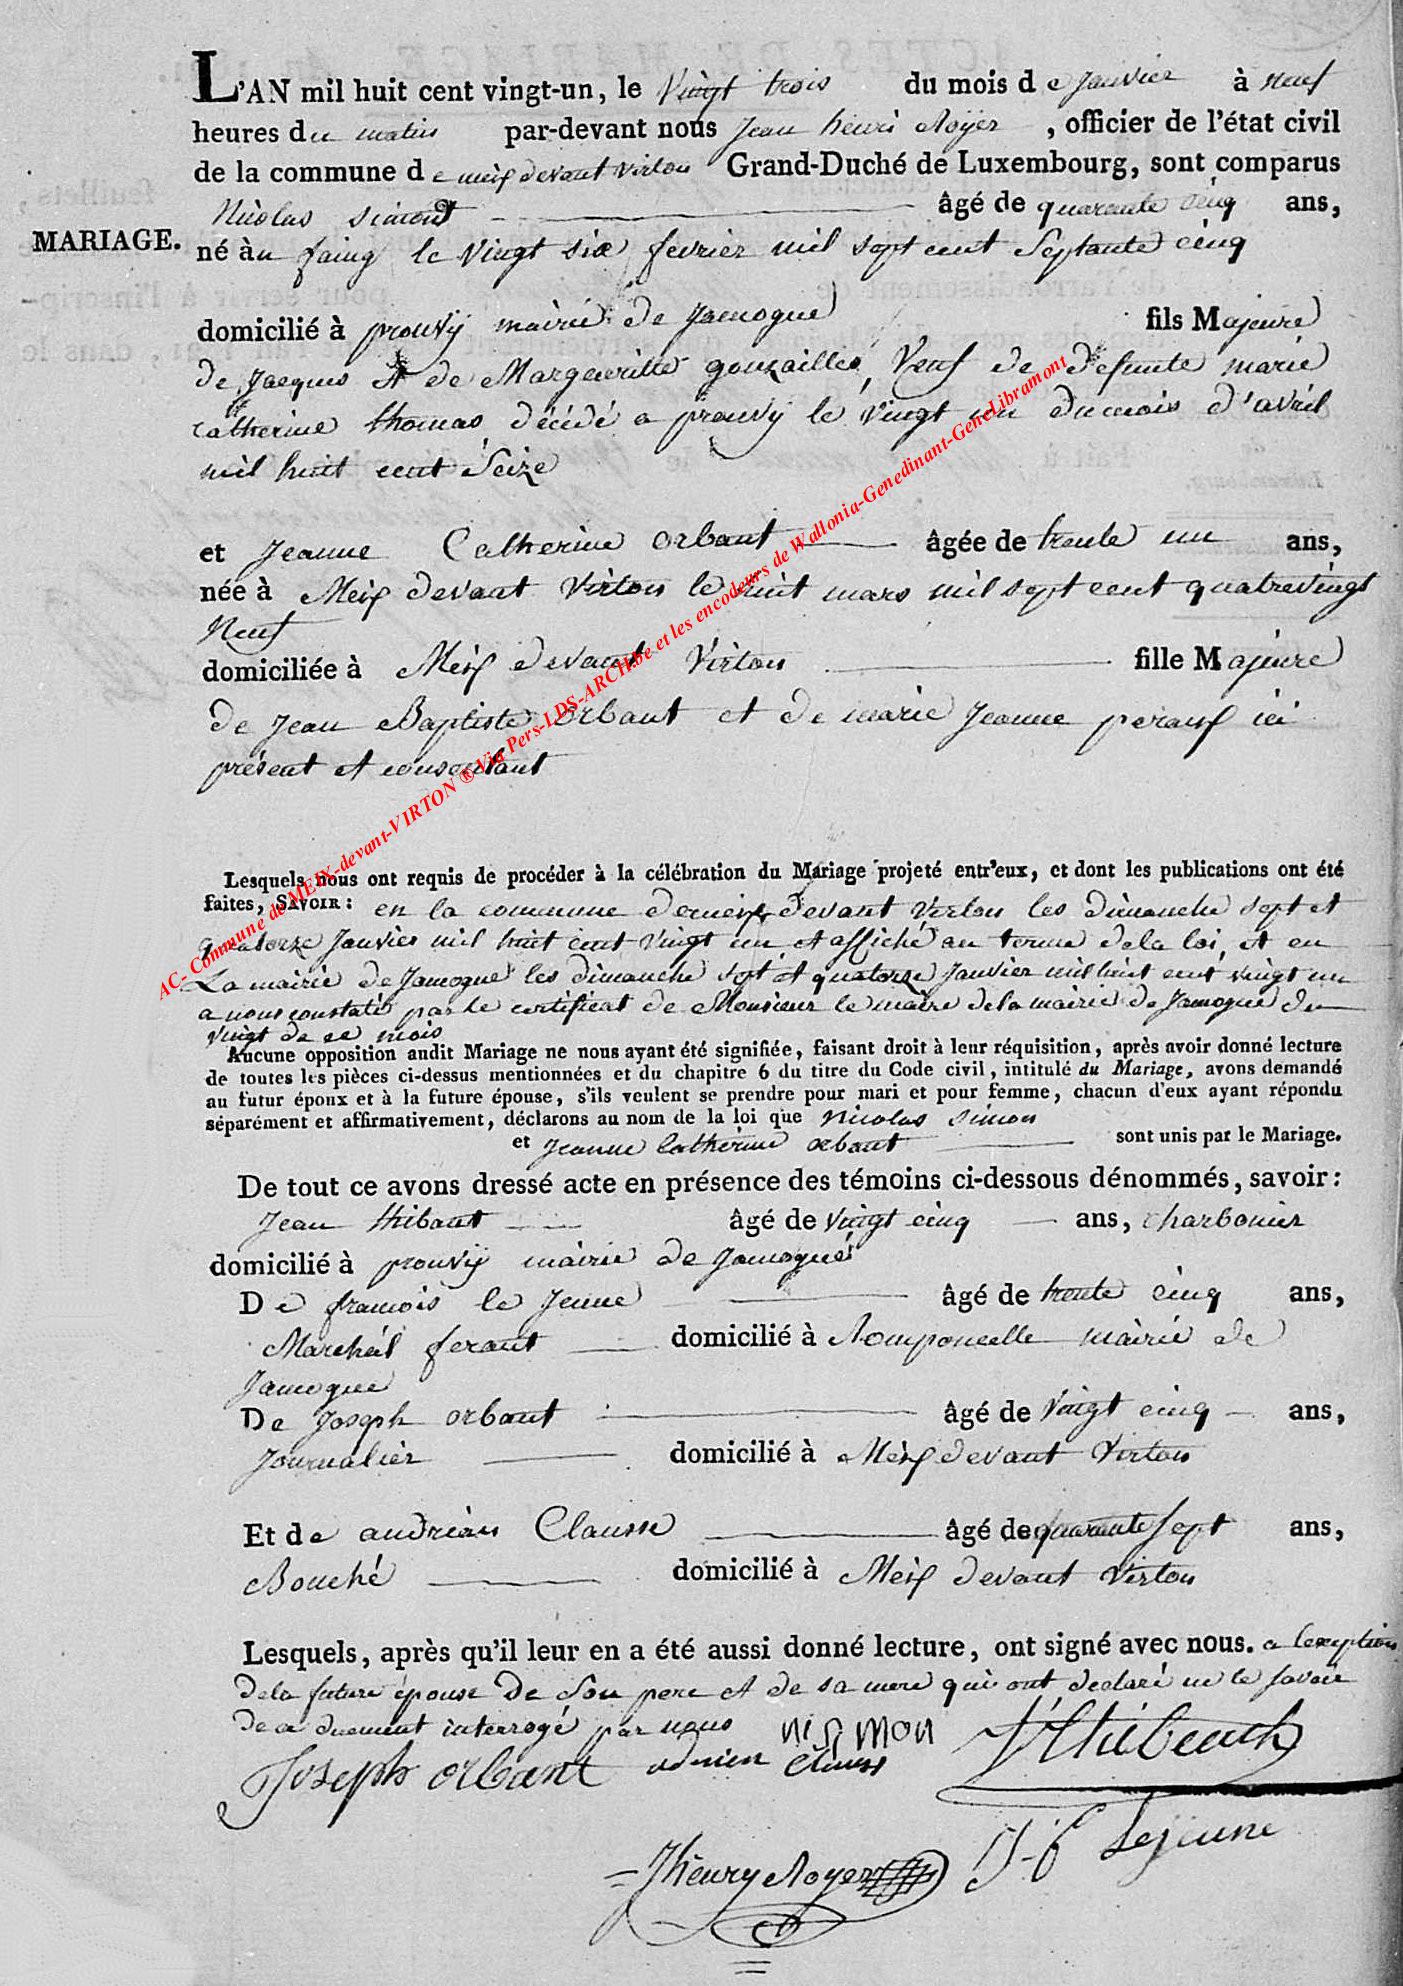 L'AN mil huit cent vingt-un, le Vingt trois du mois de Janvier à neuf
heures du matin par-devant nous Jean henri Noyer, officier de l'état civil
de la commune de meix devant virton Grand-Duché de Luxembourg, sont comparus
Nicolas Simon âgé de quarante cinq ans,
MARIAGE.
né àu faing le Vingt six fevrier mil sept cent Septante cinq
domicilié à prouvÿ mairie de Jamogne fils Majeure
de Jacques et de Margueritte gonzailles, Veuf de defunte marie
catherine thomas décédé a prouvÿ le vingt un du mois d'avril
mil huit cent Seize
et Jeanne Catherine orbant âgée de trente un ans,
née à Meix devant Virton le huit mars mil sept cent quatrevingt
Neuf
domiciliée à Meix devant Virton fille Majeure
de Jean Baptiste orbant et de marie Jeanne ici
présent et consentant
Lesquels nous ont requis de procéder à la célébration du Mariage projeté entr'eux, et dont les publications ont été
faites, SAVOIR : en la commune de meix devant Virton les dimanche sept et
quatorze Janvier mil huit cent vingt un et affiché au terme de la loi, et en
La mairie de Jamogne les dimanche sept et quatorze Janvier mil huit cent vingt un
a nous constaté par le certificat de Monsieur le maire de la mairie de Jamogne du
vingt de ce mois
Aucune opposition audit Mariage ne nous ayant été signifiée, faisant droit à leur réquisition, après avoir donné lecture
de toutes les pièces ci-dessus mentionnées et du chapitre 6 du titre du Code civil, intitulé du Mariage, avons demandé
au futur époux et à la future épouse, s'ils veulent se prendre pour mari et pour femme, chacun d'eux ayant répondu
séparément et affirmativement, déclarons au nom de la loi que Nicolas Simon
et Jeanne Catherine orbant sont unis par le Mariage.
De tout ce avons dressé acte en présence des témoins ci-dessous dénommés, savoir :
Jean thibaut âgé de vingt cinq ans, charbonier
domicilié à prouvÿ mairie de Jamogne
De françois le Jeune âgé de trente cinq ans,
Marchéal ferant domicilié à Romponcelle mairie de
Jamogne
De Joseph orbant âgé de vingt cinq ans,
Journalier domicilié à Meix devant Virton
Et de andrien Clausse âgé de quarante sept ans,
Bouché domicilié à Meix devant Virton
Lesquels, après qu'il leur en a été aussi donné lecture, ont signé avec nous. a lexeption
de la future épouse De Son pere et de sa mere qui ont declaré ne le savoir
de ce duement interrogé par nous
Joseph orbant adrien Clauss
J-f Lejeune
Jhenry Noyer
AC- Commune de MEIX-devant-VIRTON ® Via Pers-LDS-ARCH.be et les encodeurs de Wallonia-Genedinant-GeneLibramont